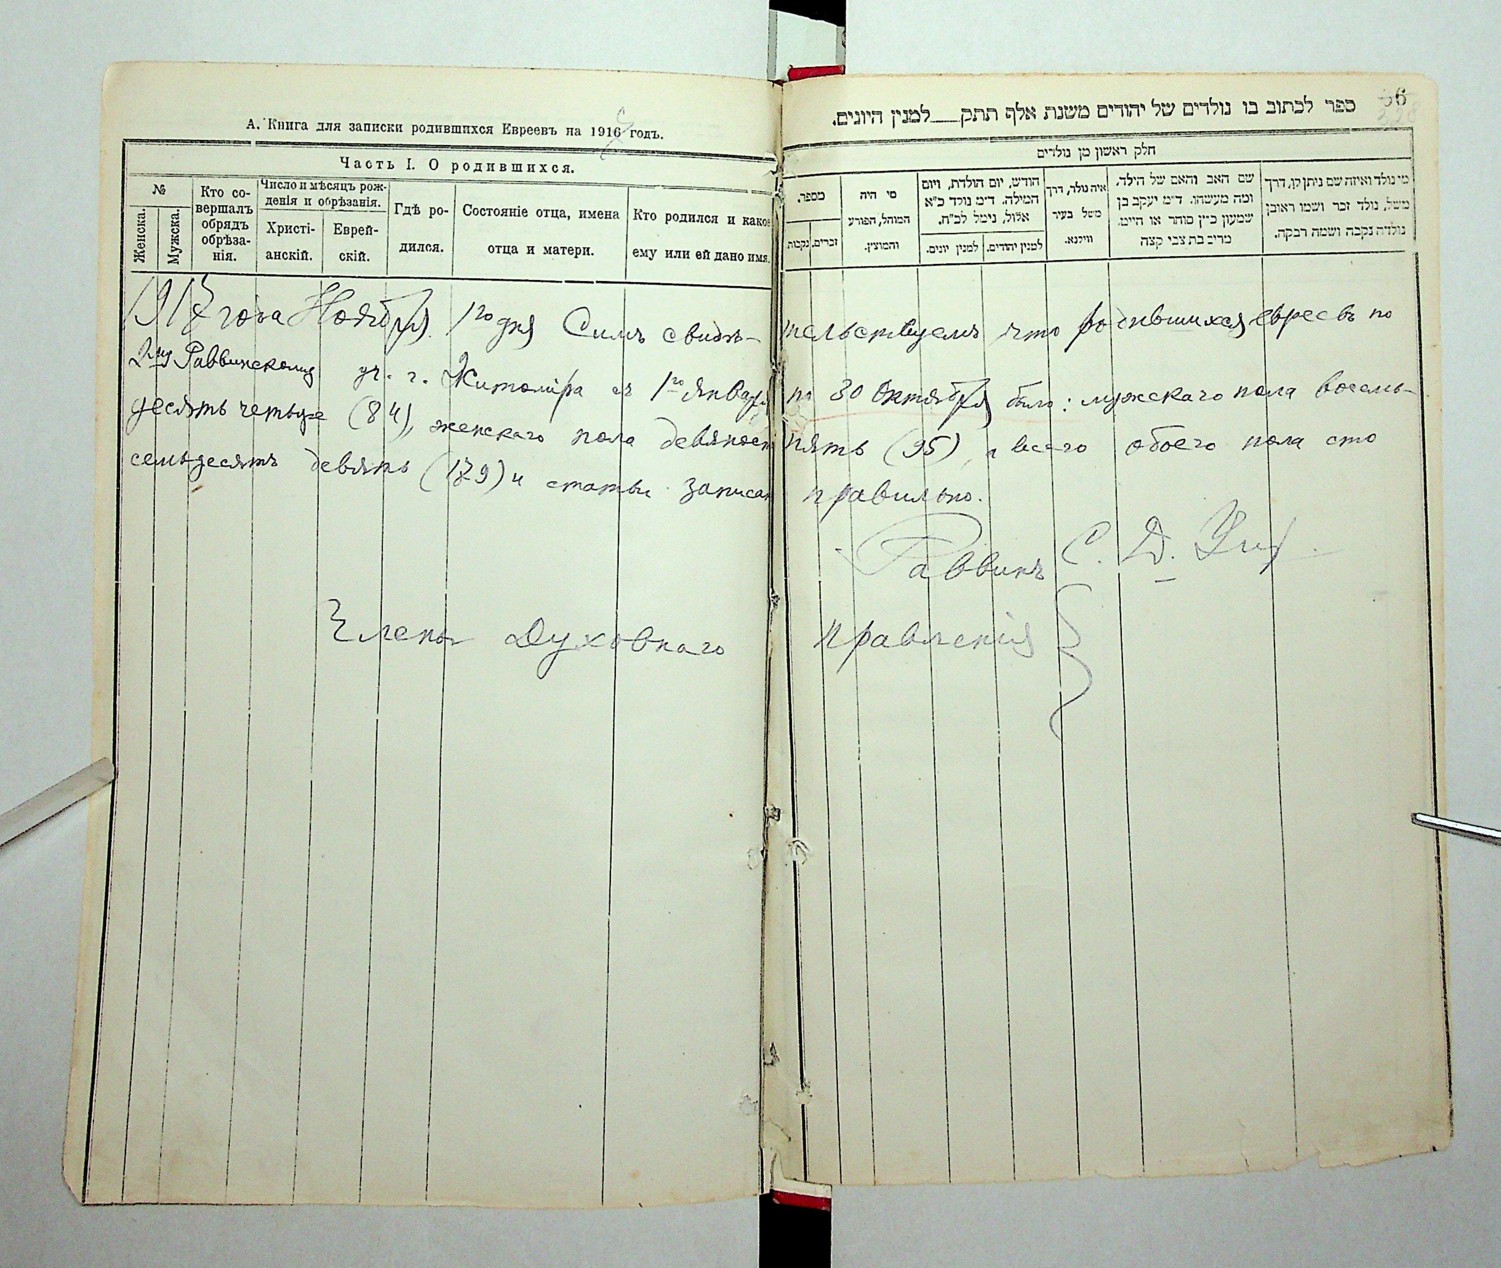 А. Книга для записки родившихся Евреевъ на 1916 годъ.
Часть I. О родившихся.
№
Женска.
Мужска.
Кто со-
вершалъ
обрядъ
обрѣза-
нія.
Число и мѣсяцъ рож-
денія и обрѣзанія.
Христі-
анскій.
Еврей-
скій.
Гдѣ ро-
дился.
Состояніе отца, имена
отца и матери.
Кто родился и какое
ему или ей дано имя.
56
ספר לכתוב בו נולדים של יהודים משנת אלף תתק___למנין היונים.
חלק ראשון מן נולדים
מספר.
זכרים.
נקבות
מי היה
המוהל, הפורע
והמוצץ.
חודש, יום הולדת, ויום
המילה. ד״מ נולד כ״א
אלול, נימל לכ״ח.
למנין יהודים.
למנין יונים.
איה נולד, דרך
משל בעיר
ווילנא.
שם האב והאם של הילד.
ומה מעשהו. ד״מ יעקב בן
שמעון כ״ץ סוחר או חייט.
מרים בת צבי קצה
מי נולד ואיזה שם ניתן לו, דרך
משל, נולד זכר ושמו ראובן
נולדה נקבה ושמה רבקה.
1917 года Ноября 1го дня Симъ свидѣ- тельствуемъ что родившихся евреевъ по
2му Раввинскому уч. г. Житомiра съ 1го Января по 30 Октября было: мужскаго пола восемь-
десятъ четыре (84), женскаго пола девяносто пять (95), а всего обоего пола сто
семьдесятъ девять (179) и статьи записаны правильно.
Раввинъ С. Д.
Члены Духовнаго правленія